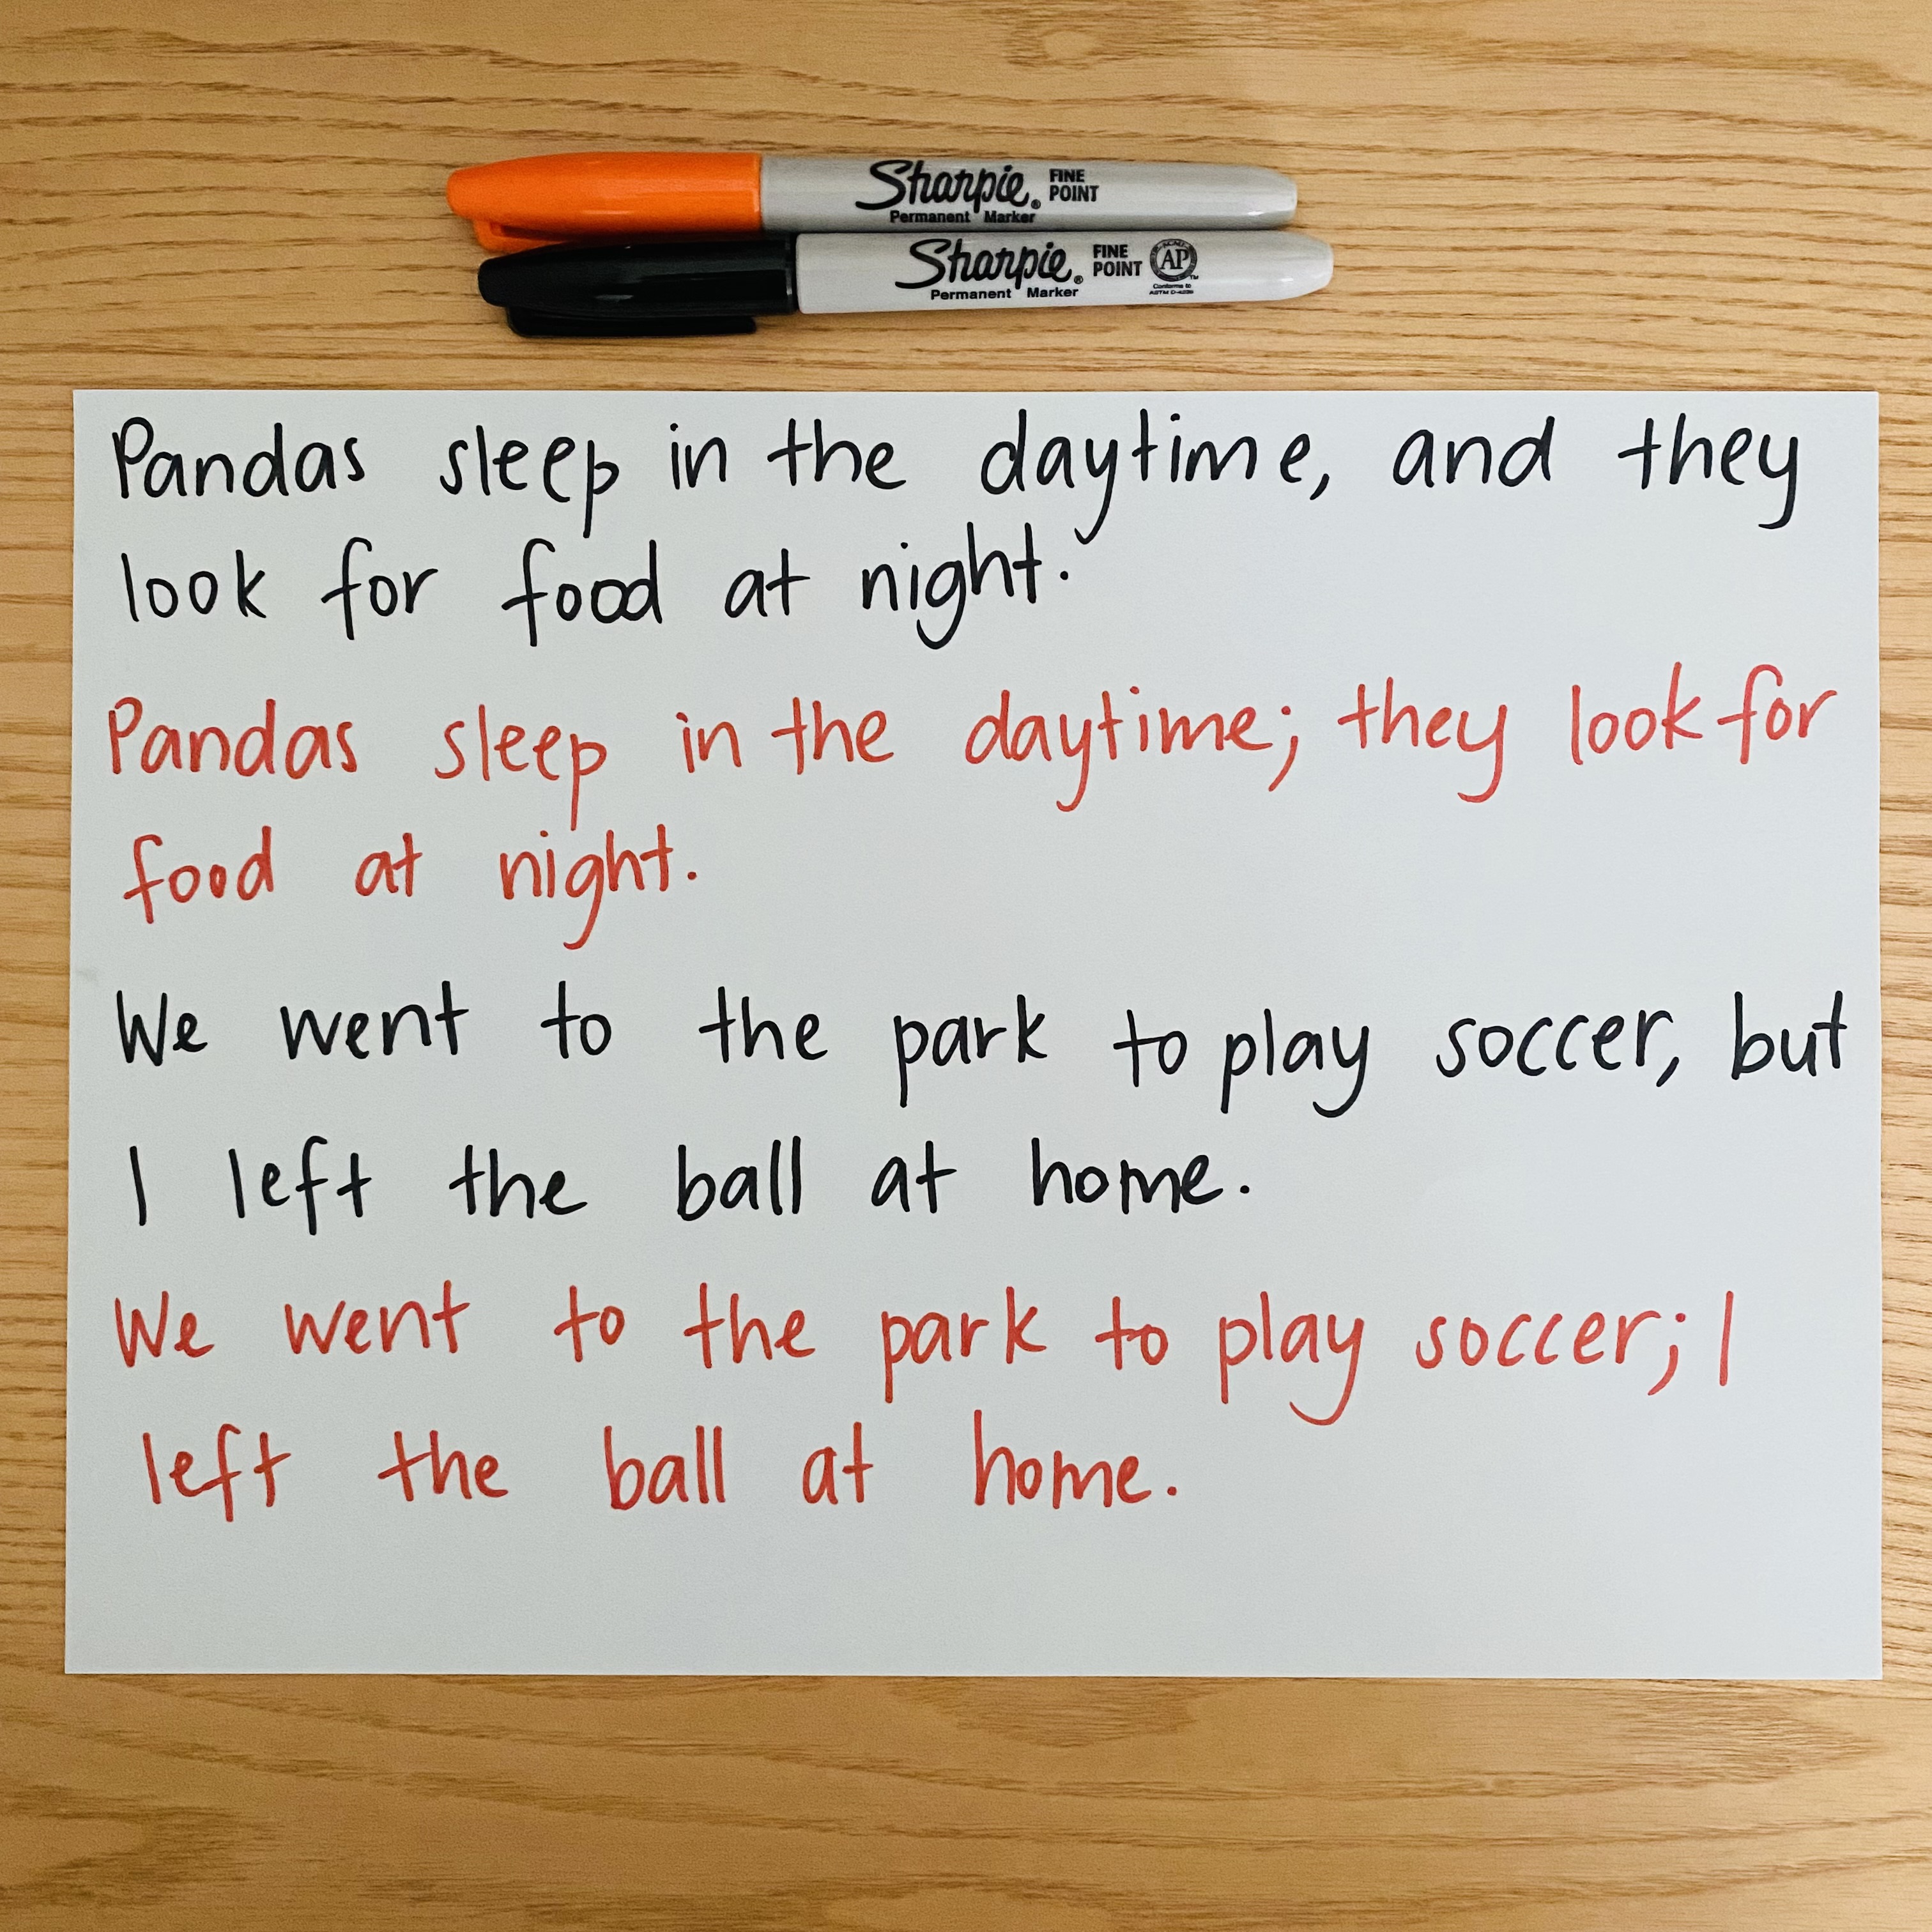 Sharpie® FINE POINT
Permanent Marker
Sharpie® FINE POINT AP
Permanent Marker Conforms to ASTM D-4236
Pandas sleep in the daytime, and they
look for food at night.
Pandas sleep in the daytime; they look for
food at night.
We went to the park to play soccer, but
I left the ball at home.
We went to the park to play soccer; I
left the ball at home.